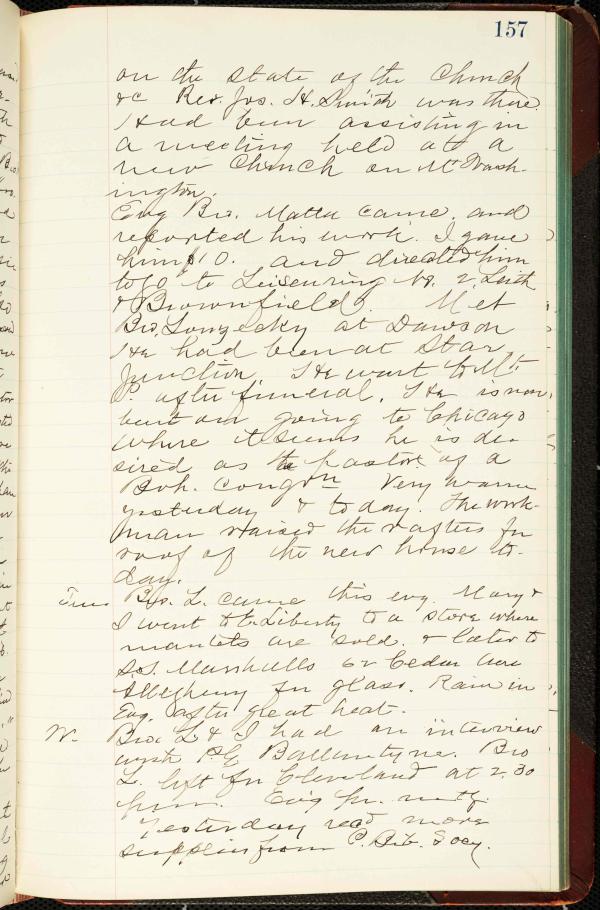 157
on the state of the Church
&c Rev. Jos. H. Smith was there
Had been assisting in
a meeting held at a
new Church on Mt Wash-
ington.
Evg Bro. Matta came. and
reported his work. I gave
him $10. and directed him
to go to Leisenring No. 2, Leith
& Brownfield. Met
Bro. Longecky at Dawson
He had been at Star
Junction, He went to Mt.
P. after funeral. He is now
bent on going to Chicago
where it seems he is de-
sired as pastor of a
Boh. congrn Very warm
yesterday & today. The work-
man raised the rafters for
roof of the new house to-
day.
Tues Bro. L. came this evg. Mary &
I went to Liberty to a store where
mantels are sold. & later to
S.S. Marshalls 62 Cedar Ave
Allegheny for glass. Rain in
Evg. after great heat.
W. Bro. L & I had an interview
with P.G Ballantyne. Bro
L. left for Cleveland at 2.30
p.m. Evg pr. mtg.
Yesterday recd more
supplies from P. Bib. Socy.